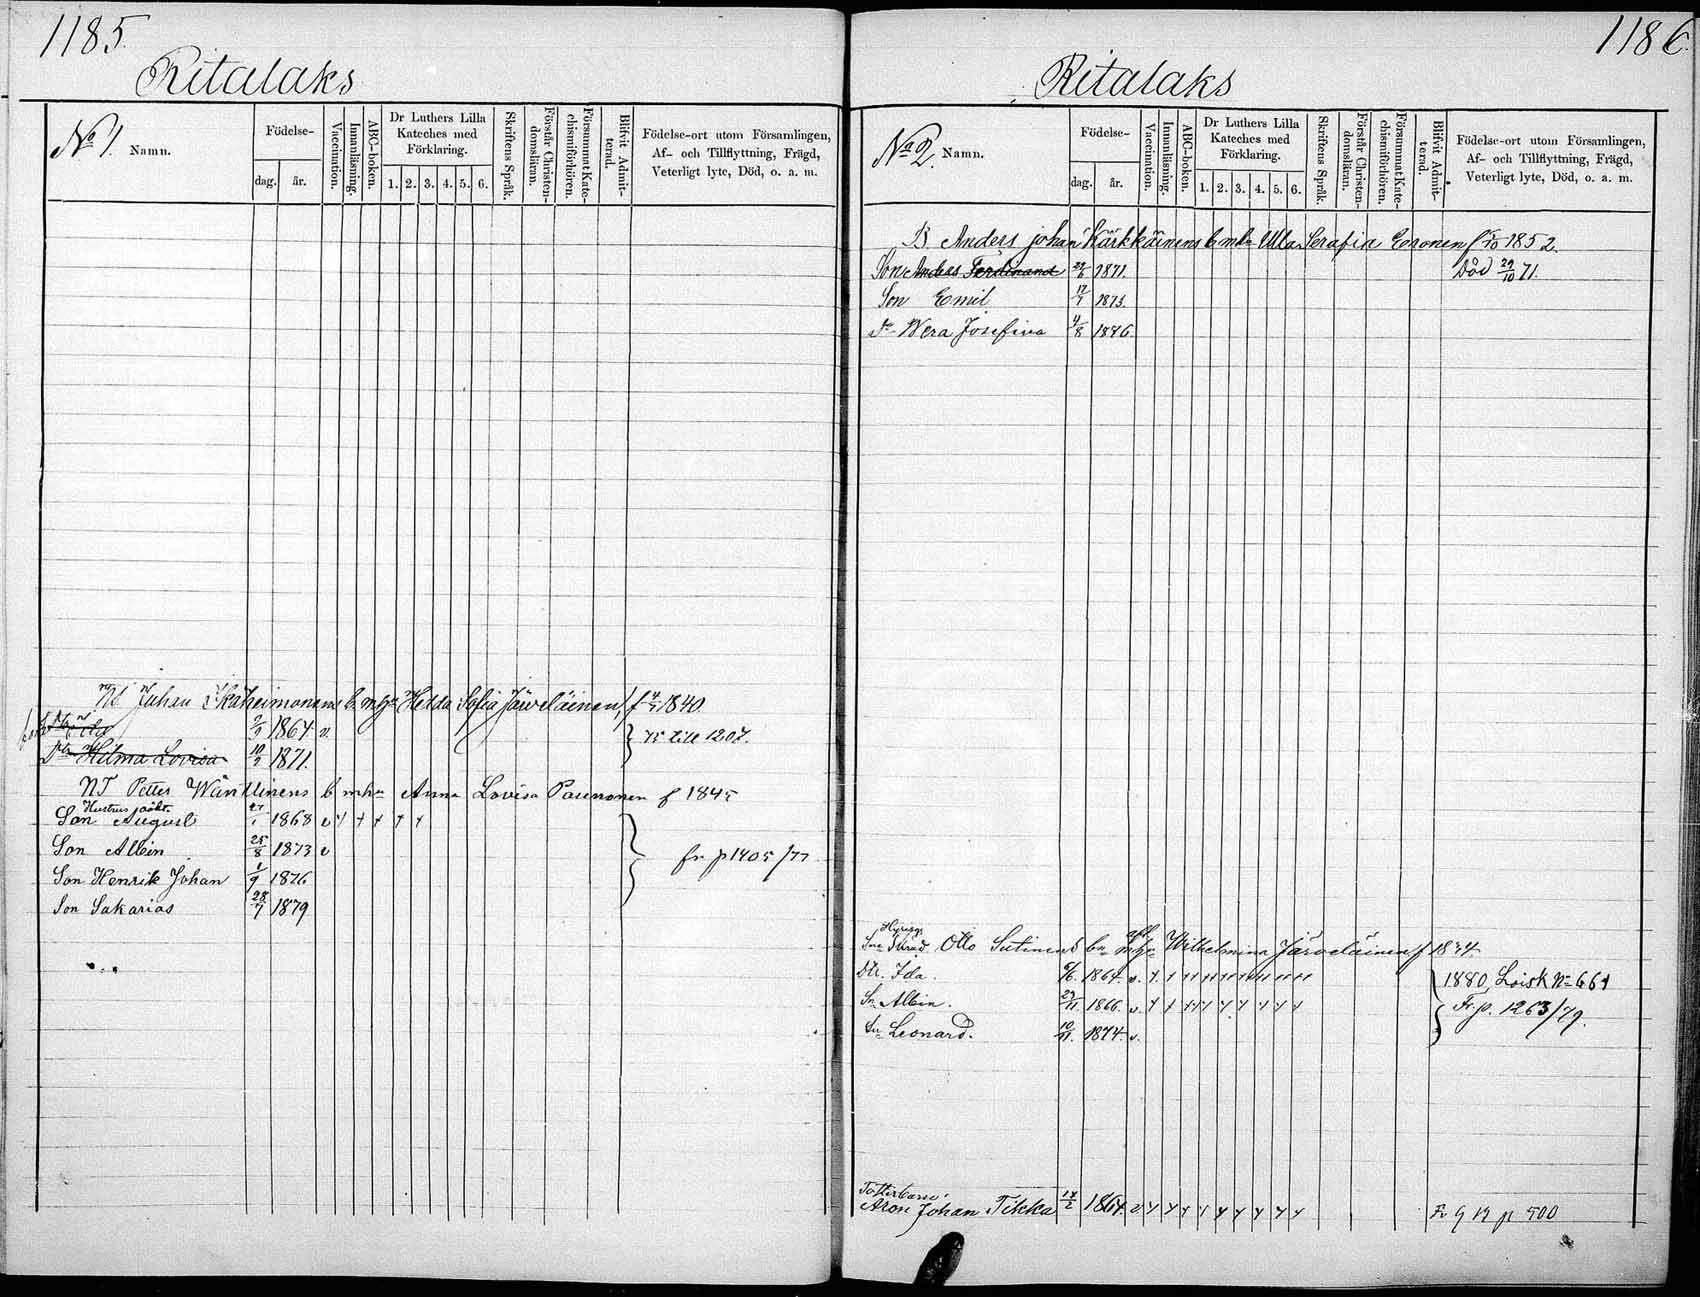 1185
Ritalaks
No 1.
Namn.
Födelse-
dag.
år.
Vaccination.
Innanläsning.
ABC-boken.
Dr Luthers Lilla
Kateches med
Förklaring.
1. 2. 3. 4. 5. 6.
Skriftens Språk.
Förstår Christen-
domsläran.
Försummat Kate-
chismiförhören.
Blifvit Admit-
terad.
Födelse-ort utom Församlingen,
Af- och Tillflyttning, Frägd,
Veterligt lyte, Död, o. a. m.
Johan Ikäheimonens b m hu Hedda Sofia Järveläinen, f 4/5 1840
1864 v.
75 till 1207.
Dtr Hilma Lovisa 10/2 1871.
Petter Wänttinens b m hu Anna Lovisa Pasenonen f 1845
Hustrus oäkt.
Son August 1868 v
Son Albin 25/8 1873 v
fr p 1405/77
Son Henrik Johan 1/9 1876
Son Sakarias 28/7 1879
1186
Ritalaks
No 2.
Namn.
Födelse-
dag.
år.
Vaccination.
Innanläsning.
ABC-boken.
Dr Luthers Lilla
Kateches med
Förklaring.
1. 2. 3. 4. 5. 6.
Skriftens Språk.
Förstår Christen-
domsläran.
Försummat Kate-
chismiförhören.
Blifvit Admit-
terad.
Födelse-ort utom Församlingen,
Af- och Tillflyttning, Frägd,
Veterligt lyte, Död, o. a. m.
B. Anders Johan Kärkkäinens b m hu Ulla Serafia Eronen f 1852.
Son Anders Ferdinand 29/6 1871. Död 29/10 71.
Son Emil 17/7 1873.
Dr Wera Josefina 4/8 1876.
Otto Sutinens bn m hu Wilhelmina Järveläinen f 1834.
Dtr. Ida. 6/6. 1864. v.
1880, Loisk No 661
Sn Albin. 29/11. 1866. v.
Fr p. 1263/79.
Sn Leonard. 10/11. 1874. v.
Fosterbarn
Aron Johan Tikka 17/2 1864. v
Fr G B p 500